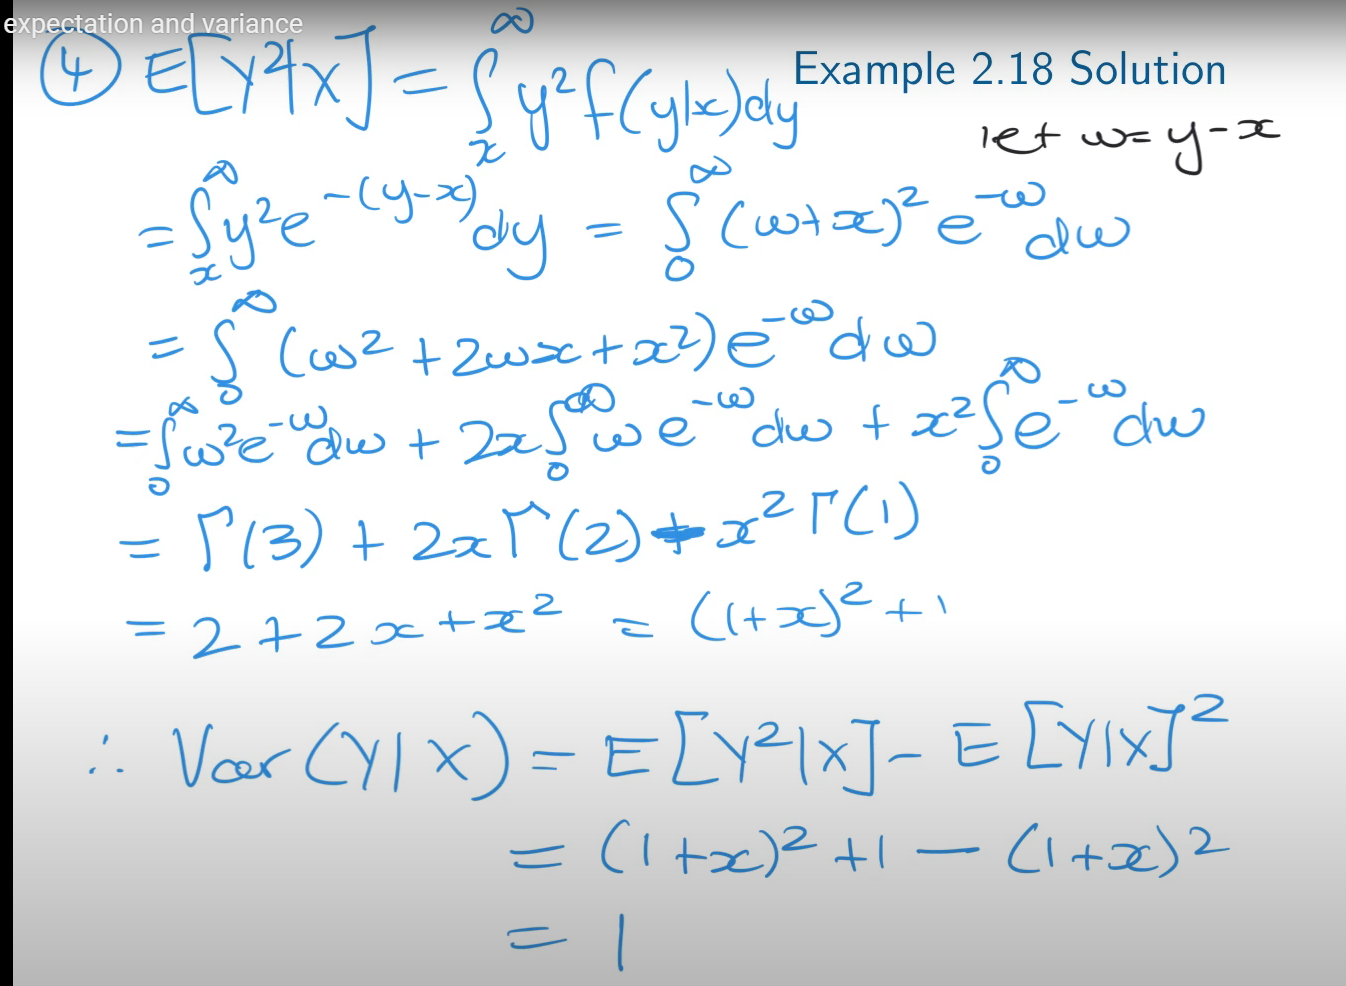 expectation and variance
Example 2.18 Solution
④ E[Y²|X] = ∫ₓ^∞ y² f(y|x)dy
let ω = y-x
= ∫ₓ^∞ y² e^{-(y-x)} dy = ∫₀^∞ (ω+x)² e^{-ω} dω
= ∫₀^∞ (ω² + 2ωx + x²) e^{-ω} dω
= ∫₀^∞ ω² e^{-ω} dω + 2x ∫₀^∞ ω e^{-ω} dω + x² ∫₀^∞ e^{-ω} dω
= Γ(3) + 2xΓ(2) + x² Γ(1)
= 2 + 2x + x² = (1+x)² + 1
∴ Var(Y|X) = E[Y²|X] - E[Y|X]²
= (1+x)² + 1 - (1+x)²
= 1